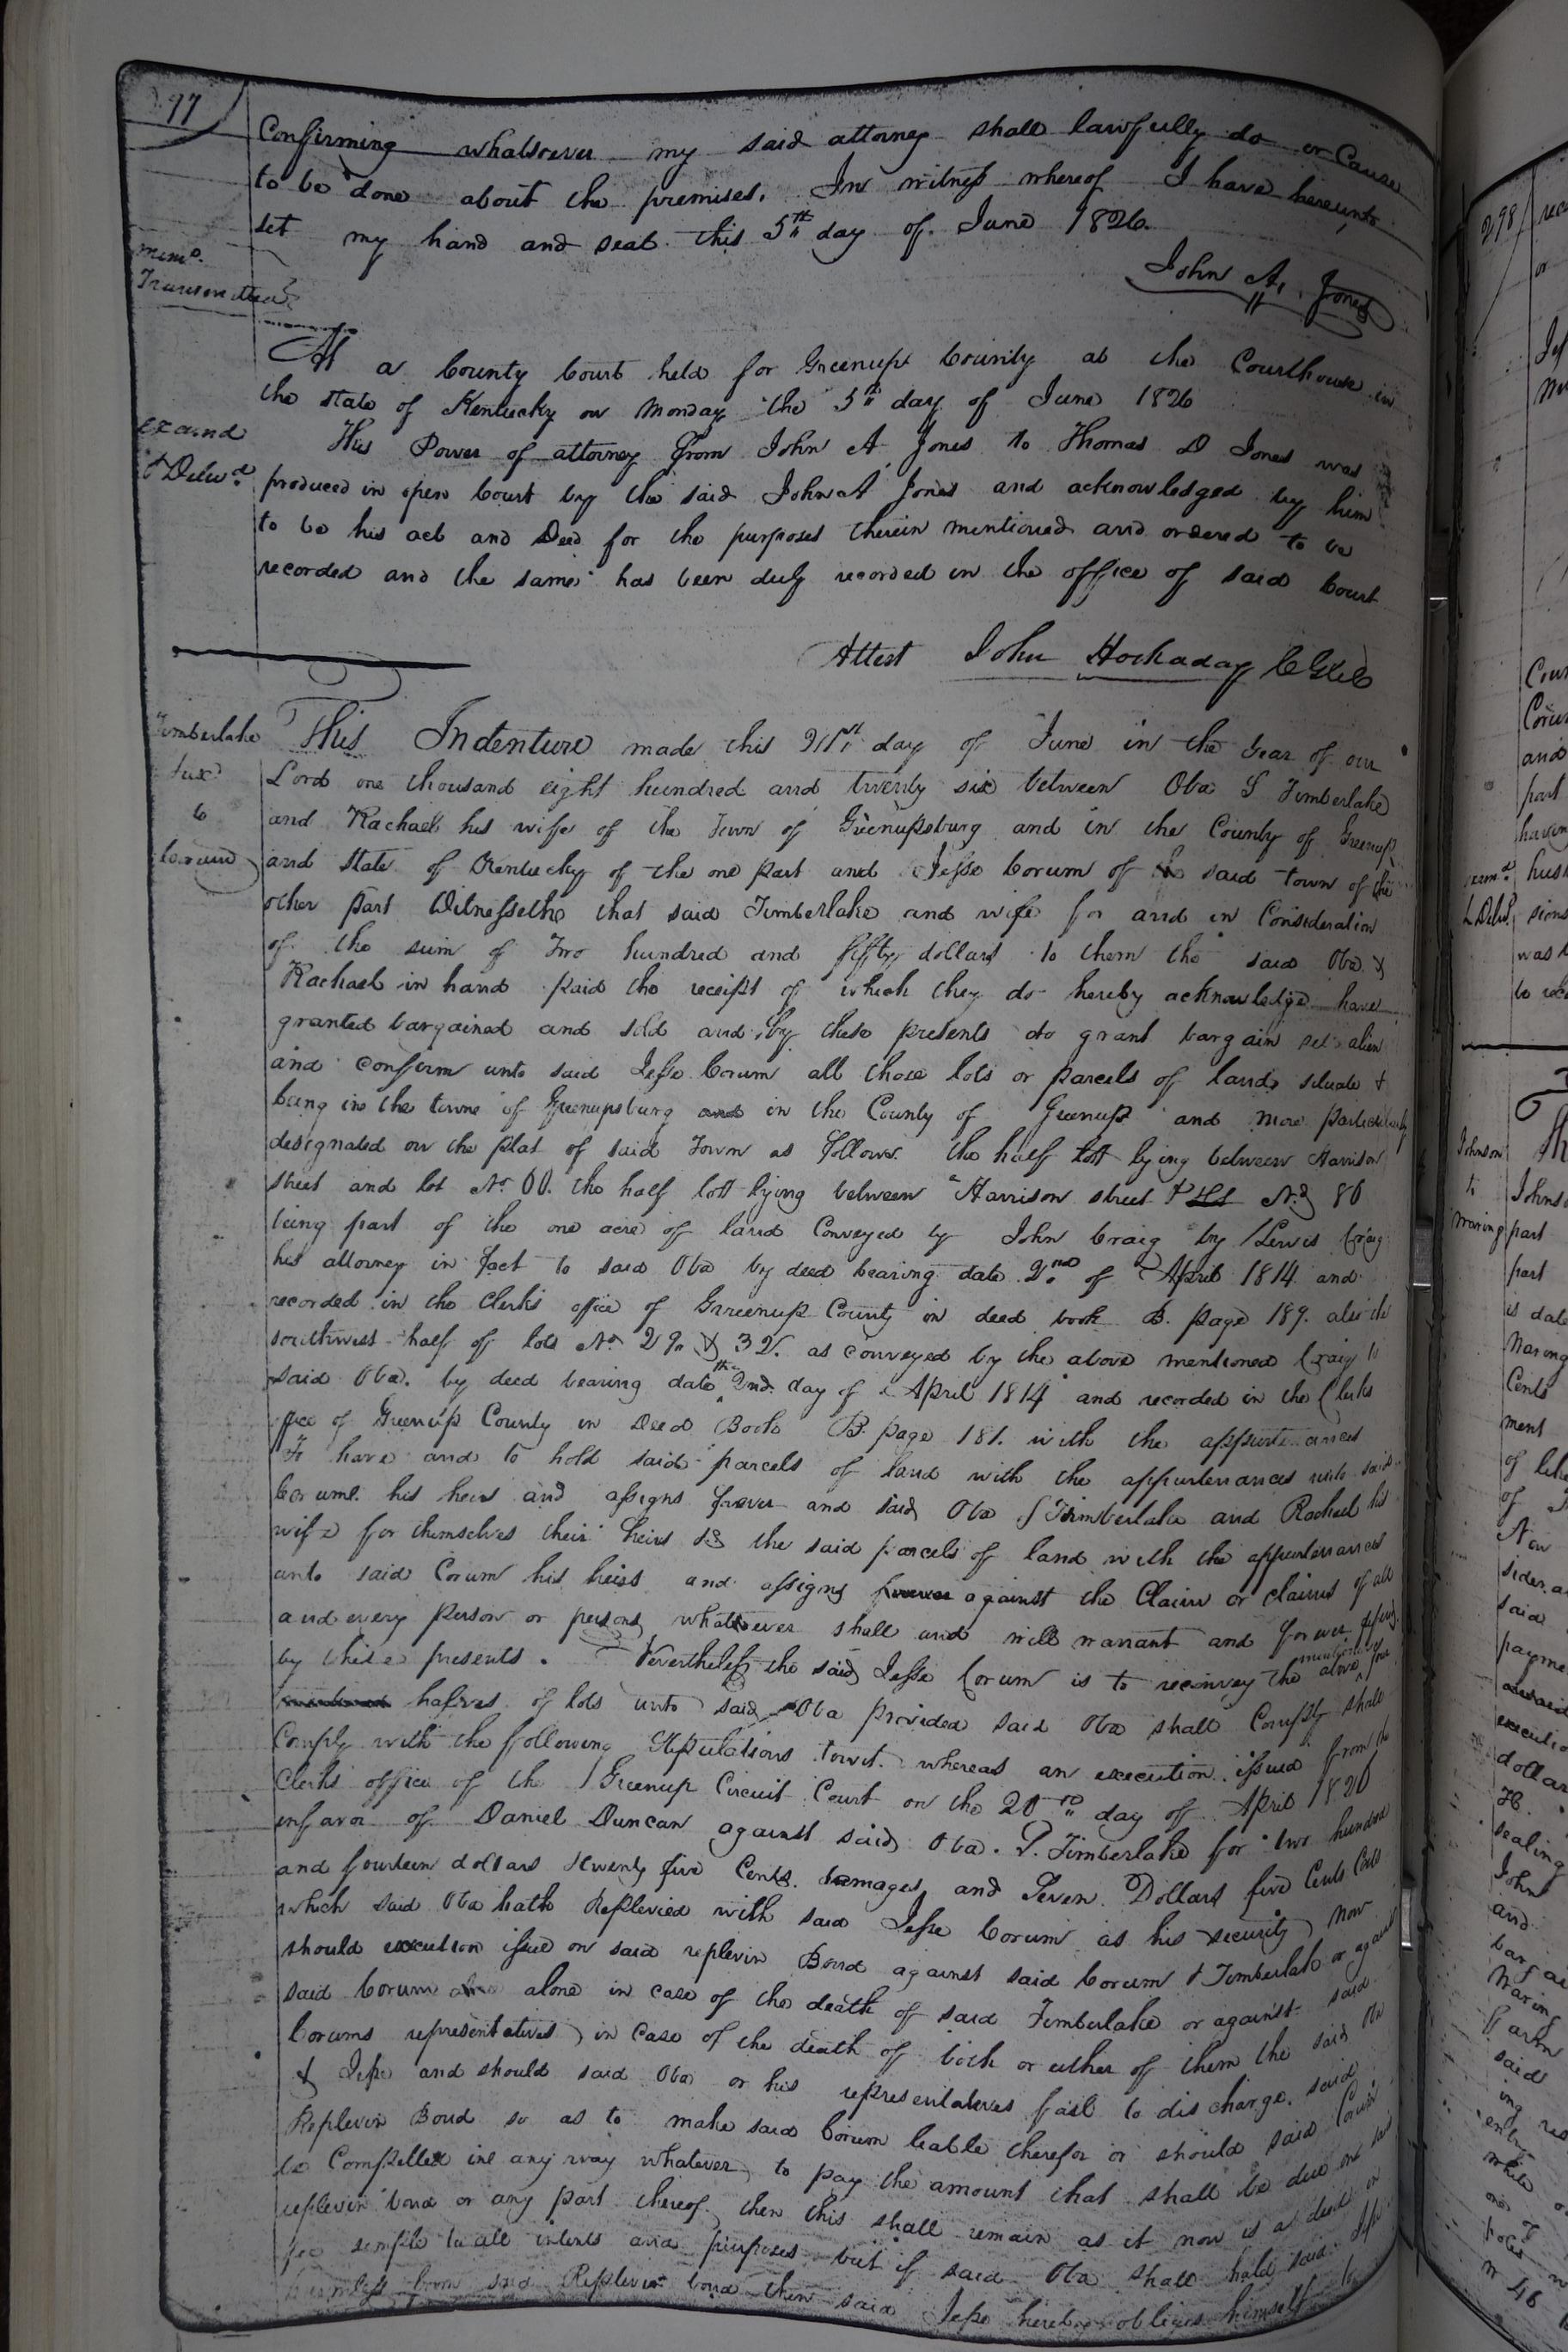 97
Confirming whatsoever my said attorney shall lawfully do or Cause
to be done about the premises. In witness whereof I have hereunto
set my hand and seal this 5th day of June 1826.
John A. Jones
memo.
At a County Court held for Greenup County at the Courthouse in
the state of Kentucky on Monday the 5th day of June 1826
examd
& Delivd
This Power of attorney from John A Jones to Thomas D Jones was
produced in open Court by the said John A Jones and acknowledged by him
to be his act and Deed for the purposes therein mentioned and ordered to be
recorded and the same has been duly recorded in the office of said Court
Attest John Hockaday
Timberlake
&ux
to
Corum
This Indenture made this 21st day of June in the Year of our
Lord one thousand eight hundred and twenty six between Oba S Timberlake
and Rachael his wife of the Town of Greenupsburg and in the County of Greenup
and State of Kentucky of the one part and Jesse Corum of said town of the
other part Witnesseth that said Timberlake and wife for and in Consideration
of the sum of Two hundred and fifty dollars to them the said Oba &
Rachael in hand paid the receipt of which they do hereby acknowledge have
granted bargained and sold and by these presents do grant bargain sel alien
and confirm unto said Jesse Corum all those lots or parcels of land situate &
being in the towne of Greenupsburg and in the County of Greenup and more particularly
designated on the plat of said Town as follows the half lott lying between Harrison
street and lot No 60. the half lott lying between Harrison street & No 86
being part of the one acre of land Conveyed by John Craig by Lewis Craig
his attorney in fact to said Oba by deed bearing date 2nd of April 1814 and
recorded in the Clerks office of Greenup County in deed book B. page 189. also the
southwest half of lots No 29 & 32. as conveyed by the above mentioned Craig to
said Oba. by deed bearing date the 2nd. day of April 1814 and recorded in the Clerks
office of Greenup County in Deed Book B. page 181. with the appurtenances
To have and to hold said parcels of land with the appurtenances unto said
Corum his heirs and assigns forever and said Oba S Timberlake and Rachael his
wife for themselves their heirs &c the said parcels of land with the appurtenances
unto said Corum his heirs and assigns forever against the Claim or claims of all
and every person or persons whatsoever shall and will warrant and forever defend
by these presents. Nevertheless the said Jesse Corum is to reconvey the above mentioned four
mentioned halves of lots unto said Oba provided said Oba shall Comply shall
Comply with the following Stipulations towit. whereas an execution issued from the
Clerks office of the Greenup Circuit Court on the 20th day of April 1826
infavor of Daniel Duncan against said Oba. S. Timberlake for two hundred
and fourteen dollars twenty five Cents. Damages and Seven Dollars five Cents Costs
which said Oba hath Replevied with said Jesse Corum as his security Now
should execution issue on said replevin Bond against said Corum & Timberlake or against
said Corum alone in case of the death of said Timberlake or against said
Corums representatives in case of the death of both or either of them the said Oba
& Jesse and should said Oba or his representatives fail to discharge said
Replevin Bond so as to make said Corum liable therefor or should said Corum
be Compelled in any way whatever to pay the amount that shall be due on said
replevin bond or any part thereof then this shall remain as it now is a deed in
fee simple to all intents and purposes but if said Oba shall hold said Jesse
harmless from said Replevin bond then said Jesse hereby obliges himself to
298
Johnson
to
Waring